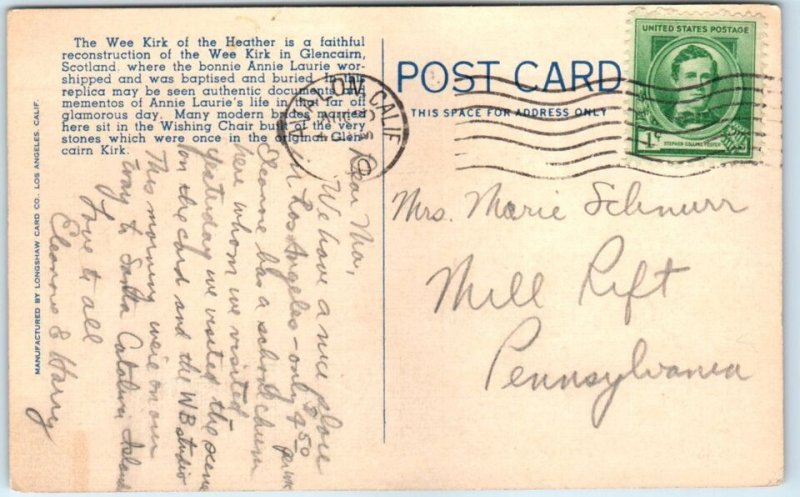 The Wee Kirk of the Heather is a faithful
reconstruction of the Wee Kirk in Glencairn,
Scotland, where the bonnie Annie Laurie wor-
shipped and was baptised and buried. In this
replica may be seen authentic documents and
mementos of Annie Laurie's life in that far off
glamorous day. Many modern brides married
here sit in the Wishing Chair built of the very
stones which were once in the original Glen-
cairn Kirk.
MANUFACTURED BY LONGSHAW CARD CO., LOS ANGELES, CALIF.
POST CARD
THIS SPACE FOR ADDRESS ONLY
CALIF
UNITED STATES POSTAGE
1¢
STEPHEN COLLINS FOSTER
Dear Ma,
We have a nice place
in Los Angeles - only 4.50 per wk
Eleanore has a school chum
here whom we visited
yesterday we visited the scene
on the card and the WB studio
This morning were on our
way to Santa Catalina Island
Love to all
Eleanore & Harry
Mrs. Marie Schnurr
Mill Rift
Pennsylvania